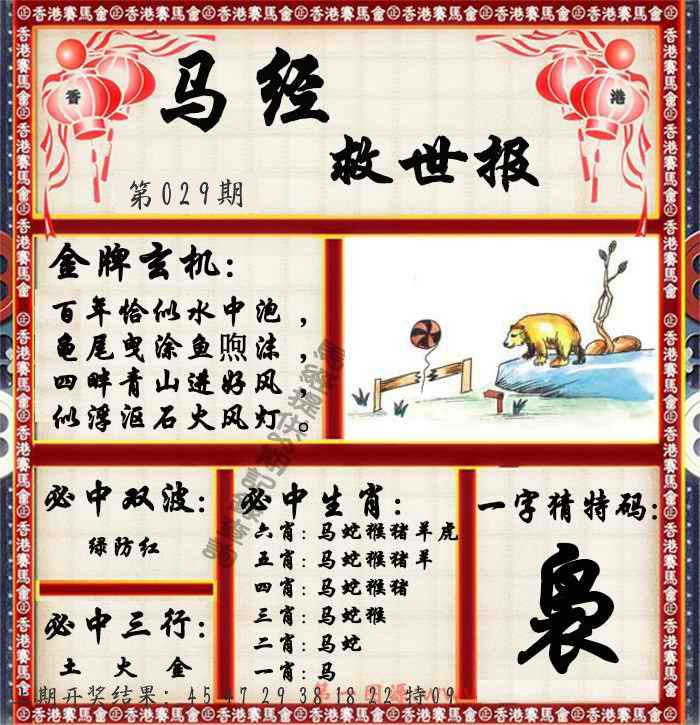 香港賽馬會
香 港
马经
救世报
第029期
金牌玄机:
百年恰似水中泡，
龟尾曳涂鱼喣沫，
四畔青山进好风，
似浮沤石火风灯。
必中双波:
绿防红
必中三行:
土 火 金
必中生肖:
六肖:马蛇猴猪羊虎
五肖:马蛇猴猪羊
四肖:马蛇猴猪
三肖:马蛇猴
二肖:马蛇
一肖:马
一字猜特码:
袅
期开奖结果: 45 47 29 38 18 22 特09